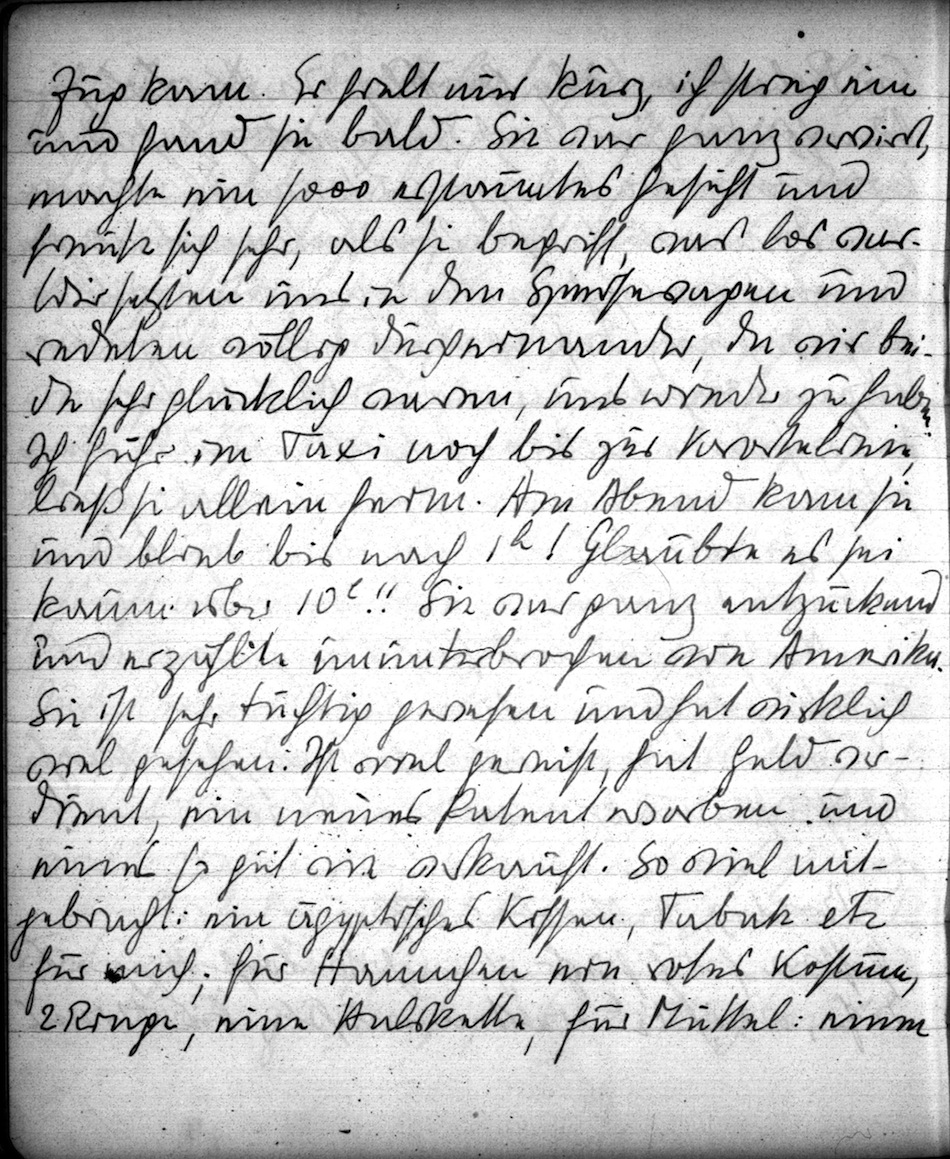 Zug kam. Er hielt nur kurz, ich stieg ein
und fand sie bald. Sie war ganz verwirrt,
machte ein sooo erstauntes Gesicht und
freute sich sehr, als sie begriff, was los war.
Wir setzten uns in den Speisewagen und
redeten völlig durcheinander, da wir bei-
de sehr glücklich waren, uns wieder zu haben.
Ich fuhr im Taxi noch bis zur
ließ sie allein heim. Am Abend kam sie
und blieb bis nach 1h! Glaubte es sei
kaum über 10h!! Sie war ganz entzückend
und erzählte ununterbrochen von Amerika.
Sie ist sehr tüchtig gewesen und hat wirklich
viel gesehen. Ist viel gereist, hat Geld ver-
dient, ein neues Patent erworben und
eines so gut wie verkauft. So viel mit-
gebracht: ein ägyptisches Kissen, Tabak etc
für mich; für Hannchen ein rotes Kostüm,
2 Ringe, eine Halskette, für Muttel: einen